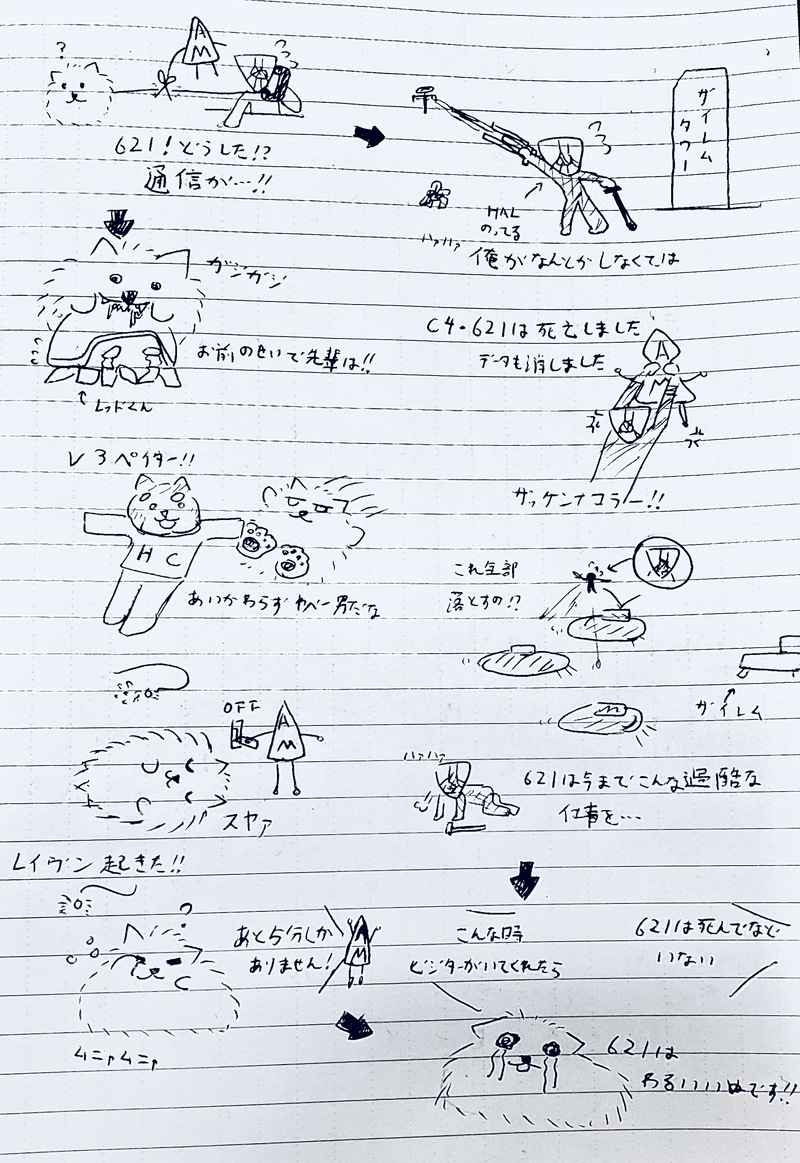 ?
AM
621!どうした!?
通信が…!!
ザイレム
タワー
HAL
のってる
ハァハァ
俺がなんとかしなくては
ガジガジ
お前のせいで先輩は!!
レッドくん
C4-621は死亡しました
データも消しました
AM
ザッケンナコラー!!
V3ペイター!!
HC
あいかわらずヤベー男だな
これ全部
落とすの!?
ザイレム
OFF
AM
スヤァ
ハァハァ
621は今までこんな過酷な
仕事を…
レイヴン起きた!!
?
あと5分しか
ありません!
AM
ムニャムニャ
こんな時
ビジターがいてくれたら
621は死んでなど
いない
621は
わるいいぬです!!